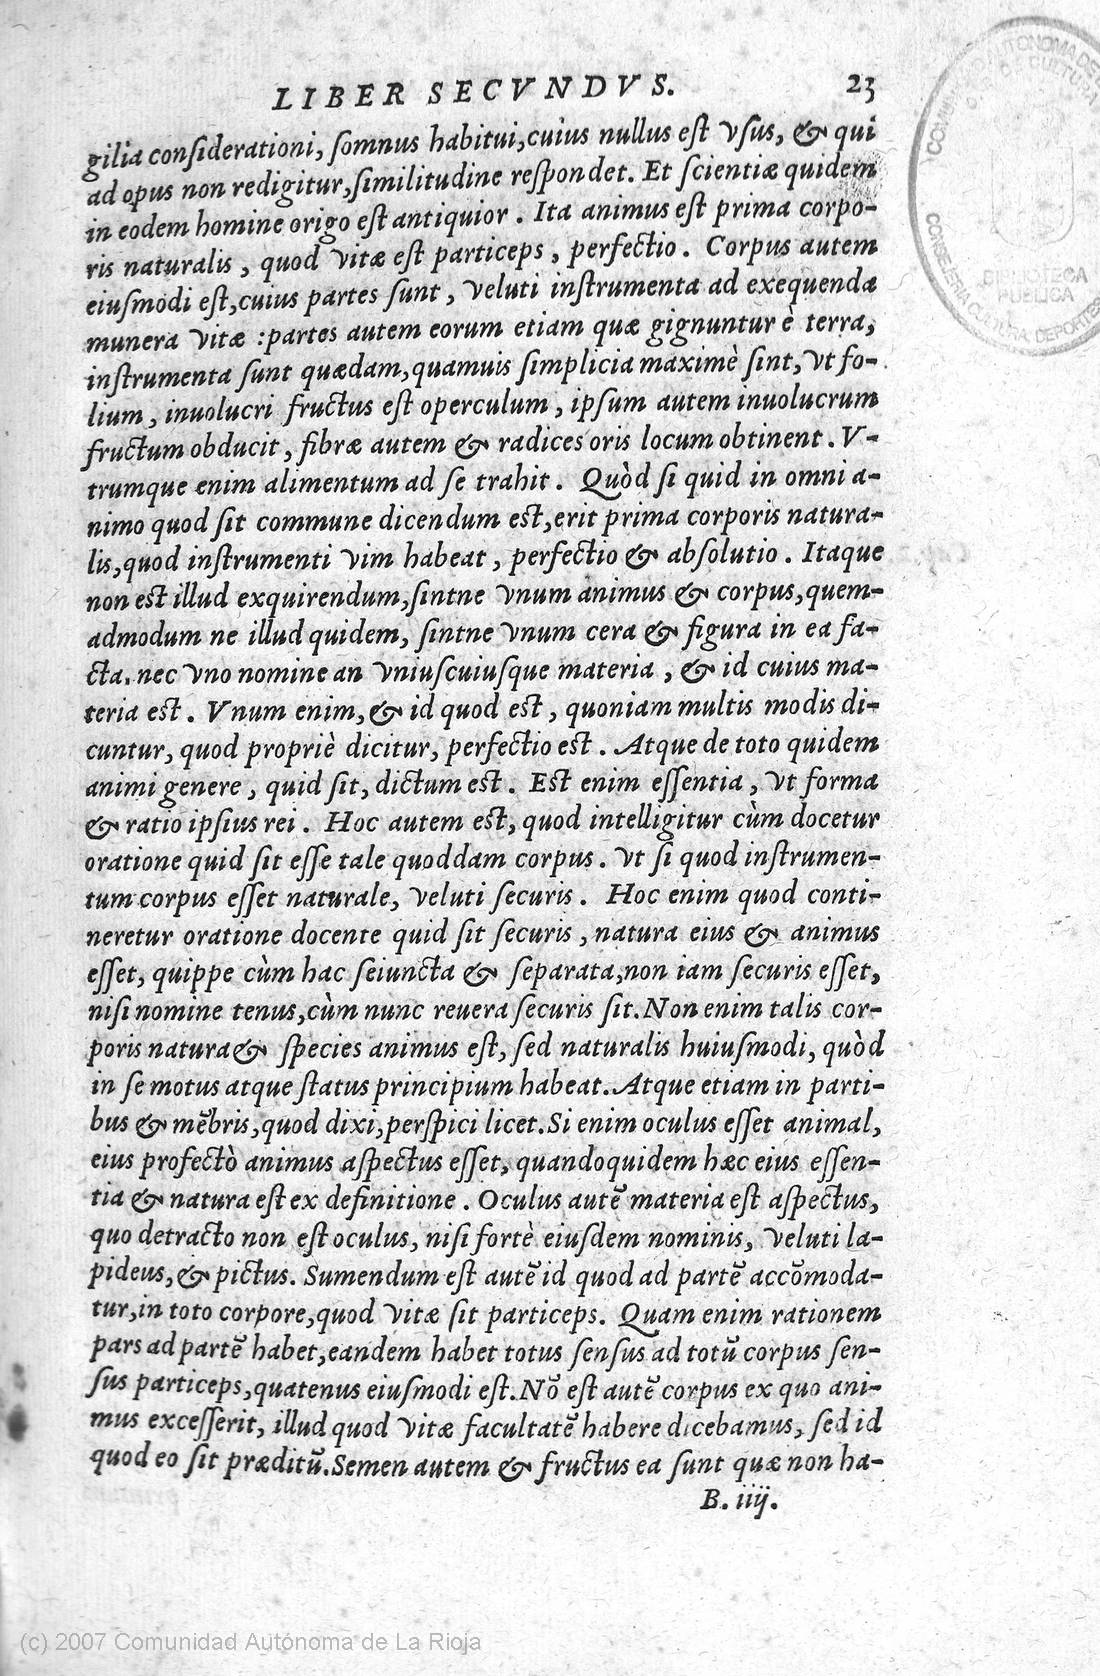 LIBER SECVNDVS. 23
gilia conſiderationi, ſomnus habitui, cuius nullus eſt vſus, & qui
ad opus non redigitur, ſimilitudine reſpondet. Et ſcientiæ quidem
in eodem homine origo eſt antiquior. Ita animus eſt prima corpo-
ris naturalis, quod vitæ eſt particeps, perfectio. Corpus autem
eiuſmodi eſt, cuius partes ſunt, veluti inſtrumenta ad exequenda
munera vitæ: partes autem eorum etiam quæ gignuntur è terra,
inſtrumenta ſunt quædam, quamuis ſimplicia maximè ſint, vt fo-
lium, inuolucri fructus eſt operculum, ipſum autem inuolucrum
fructum obducit, fibræ autem & radices oris locum obtinent. V-
trumque enim alimentum ad ſe trahit. Quòd ſi quid in omni a-
nimo quod ſit commune dicendum eſt, erit prima corporis natura-
lis, quod inſtrumenti vim habeat, perfectio & abſolutio. Itaque
non eſt illud exquirendum, ſintne vnum animus & corpus, quem-
admodum ne illud quidem, ſintne vnum cera & figura in ea fa-
cta. nec vno nomine an vniuſcuiuſque materia, & id cuius ma-
teria eſt. Vnum enim, & id quod eſt, quoniam multis modis di-
cuntur, quod propriè dicitur, perfectio eſt. Atque de toto quidem
animi genere, quid ſit, dictum eſt. Eſt enim eſſentia, vt forma
& ratio ipſius rei. Hoc autem eſt, quod intelligitur cùm docetur
oratione quid ſit eſſe tale quoddam corpus. vt ſi quod inſtrumen-
tum corpus eſſet naturale, veluti ſecuris. Hoc enim quod conti-
neretur oratione docente quid ſit ſecuris, natura eius & animus
eſſet, quippe cùm hac ſeiuncta & ſeparata, non iam ſecuris eſſet,
niſi nomine tenus, cùm nunc reuera ſecuris ſit. Non enim talis cor-
poris natura & ſpecies animus eſt, ſed naturalis huiuſmodi, quòd
in ſe motus atque ſtatus principium habeat. Atque etiam in parti-
bus & mēbris, quod dixi, perſpici licet. Si enim oculus eſſet animal,
eius profectò animus aſpectus eſſet, quandoquidem hæc eius eſſen-
tia & natura eſt ex definitione. Oculus autē materia eſt aſpectus,
quo detracto non eſt oculus, niſi fortè eiuſdem nominis, veluti la-
pideus, & pictus. Sumendum eſt autē id quod ad partē accōmoda-
tur, in toto corpore, quod vitæ ſit particeps. Quam enim rationem
pars ad partē habet, eandem habet totus ſenſus ad totū corpus ſen-
ſus particeps, quatenus eiuſmodi eſt. Nō eſt autē corpus ex quo ani-
mus exceſſerit, illud quod vitæ facultatē habere dicebamus, ſed id
quod eo ſit præditū. Semen autem & fructus ea ſunt quæ non ha-
B. iiij.
BIBLIOTECA
PUBLICA
CONSEJERIA CULTURA, DEPORTES
(c) 2007 Comunidad Autónoma de La Rioja